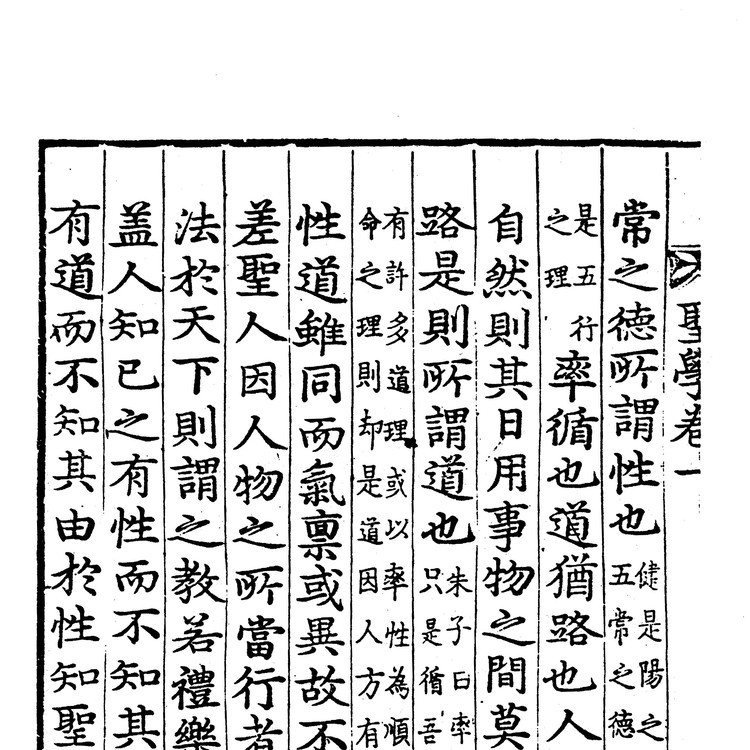 聖學卷一
常之德所謂性也健是陽之
五常之德
是五行
之理率循也道猶路也人
自然則其日用事物之間莫
路是則所謂道也朱子曰率
只是循吾
有許多道理或以率性為順
命之理則却是道因人方有
性道雖同而氣禀或異故不
差聖人因人物之所當行者
法於天下則謂之教若禮樂
盖人知已之有性而不知其
有道而不知其由於性知聖